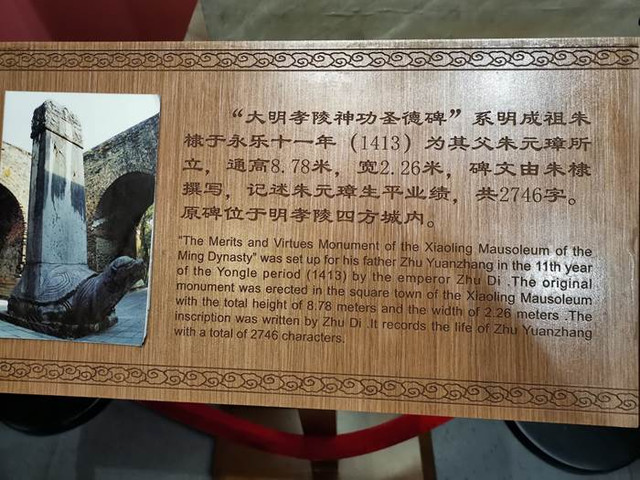 “大明孝陵神功圣德碑”系明成祖朱
棣于永乐十一年（1413）为其父朱元璋所
立，通高8.78米，宽2.26米，碑文由朱棣
撰写，记述朱元璋生平业绩，共2746字。
原碑位于明孝陵四方城内。
"The Merits and Virtues Monument of the Xiaoling Mausoleum of the
Ming Dynasty" was set up for his father Zhu Yuanzhang in the 11th year
of the Yongle period (1413) by the emperor Zhu Di .The original
monument was erected in the square town of the Xiaoling Mausoleum
with the total height of 8.78 meters and the width of 2.26 meters .The
inscription was written by Zhu Di .It records the life of Zhu Yuanzhang
with a total of 2746 characters.